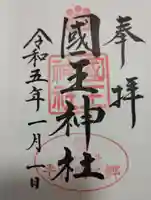 奉拝
國王神社
令和五年一月一日